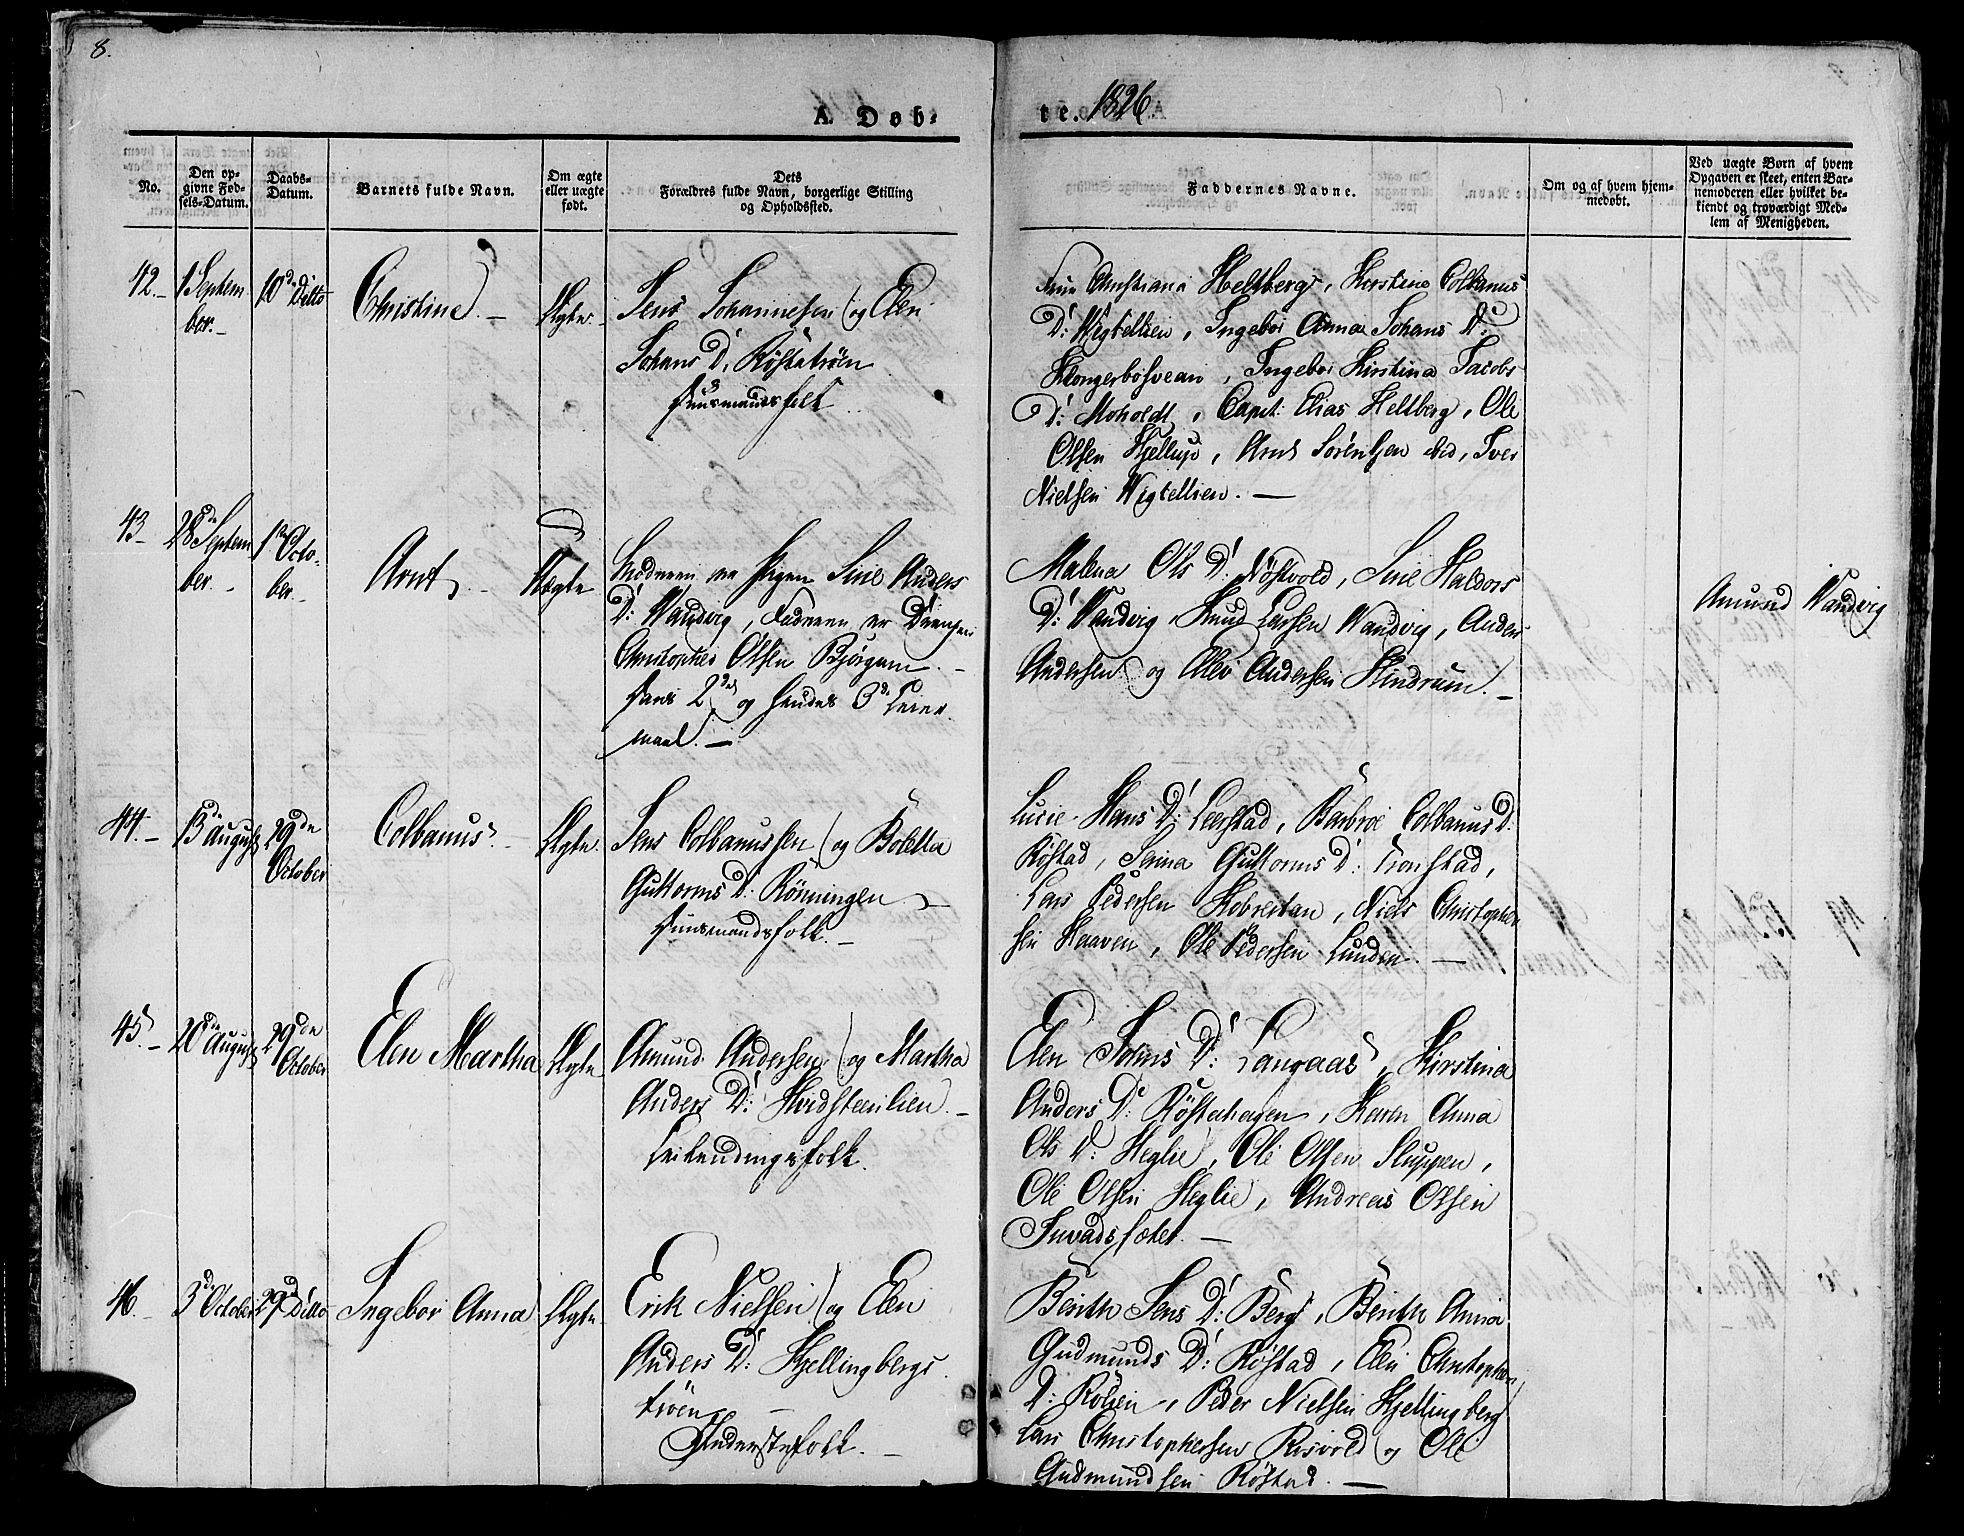 8.
A. Døb-
te. 1826.
No.
Den op-
givne Fød-
sels-Datum.
Daabs-
Datum.
Barnets fulde Navn.
Om ægte
eller uægte
født.
Dets
Forældres fulde Navn, borgerlige Stilling
og Opholdsted.
Faddernes Navne.
Om og af hvem hjem-
medøbt.
Ved uægte Børn af hvem
Opgaven er skeet, enten Bar-
nemoderen eller hvilket be-
kiendt og troværdigt Med-
lem af Menigheden.
42.
1 Septem
ber.
10de Ditto
Christine.
Ægte
Jens Johannesen og Elen
Johans D.
Huusmandsfolk
Christiana Heltberg, Kirstine Colbanus
D: Ingebor Anna Johans D:
Ingebor Kirstina Jacobs
D: Moholdt, Capt: Elias Heltberg, Ole
Olsen Hjellup, Arnt Sørentsen ibid, Iver
Nielsen
43
28de Septem
ber.
1ste Octo-
ber
Arnt
Uægte
Moderen er Pigen Siric Anders
D: Wandvig, Faderen er Drengen
Christopher Olsen Bjørgum.
hans 2det og hendes 3de Leier
maal.
Malena Ols D: Siric Haldors
D: Wandvig Knud Larsen Wandvig, Anders
Andersen og Andersen Hindrum.
Amund Wandvig
44.
13de August
29de
October
Colbanus
Ægte
Jens Colbanussen og Boletta
Guttorms D: Rönningen
Huusmandsfolk.
Lucie Hans D: Leerstad, Barbroe Colbanus D:
Røstad, Guttorms D: Tronstad,
Lars Pedersen Niels Christopher
sen Haaven, Ole Pedersen Lunden.
45.
20de August
29de
October
Elen Martha
Ægte
Amund Andersen og Martha
Anders D: Hvidsteenlien.
folk.
Elen Johns D: Langaas, Kirstina
Anders D: Røstahagen, Karen Anna
Ols D: Heglie, Ole Olsen Sluppen,
Ole Olsen Heglie, Andreas Olsen
46.
3de October
29de Ditto
Ingebor Anna
Ægte
Erik Nielsen og Elen
Anders D: Hjellingbergs
trøen
Inderstefolk.
Berith Jens D: Berg, Berith Anna
Gudmunds D: Røstad, Elen Christophers
D: Rølien, Peder Nielsen Hjellingberg
Lars Christophersen Risvold og Ole
Gudmundsen Røstad.